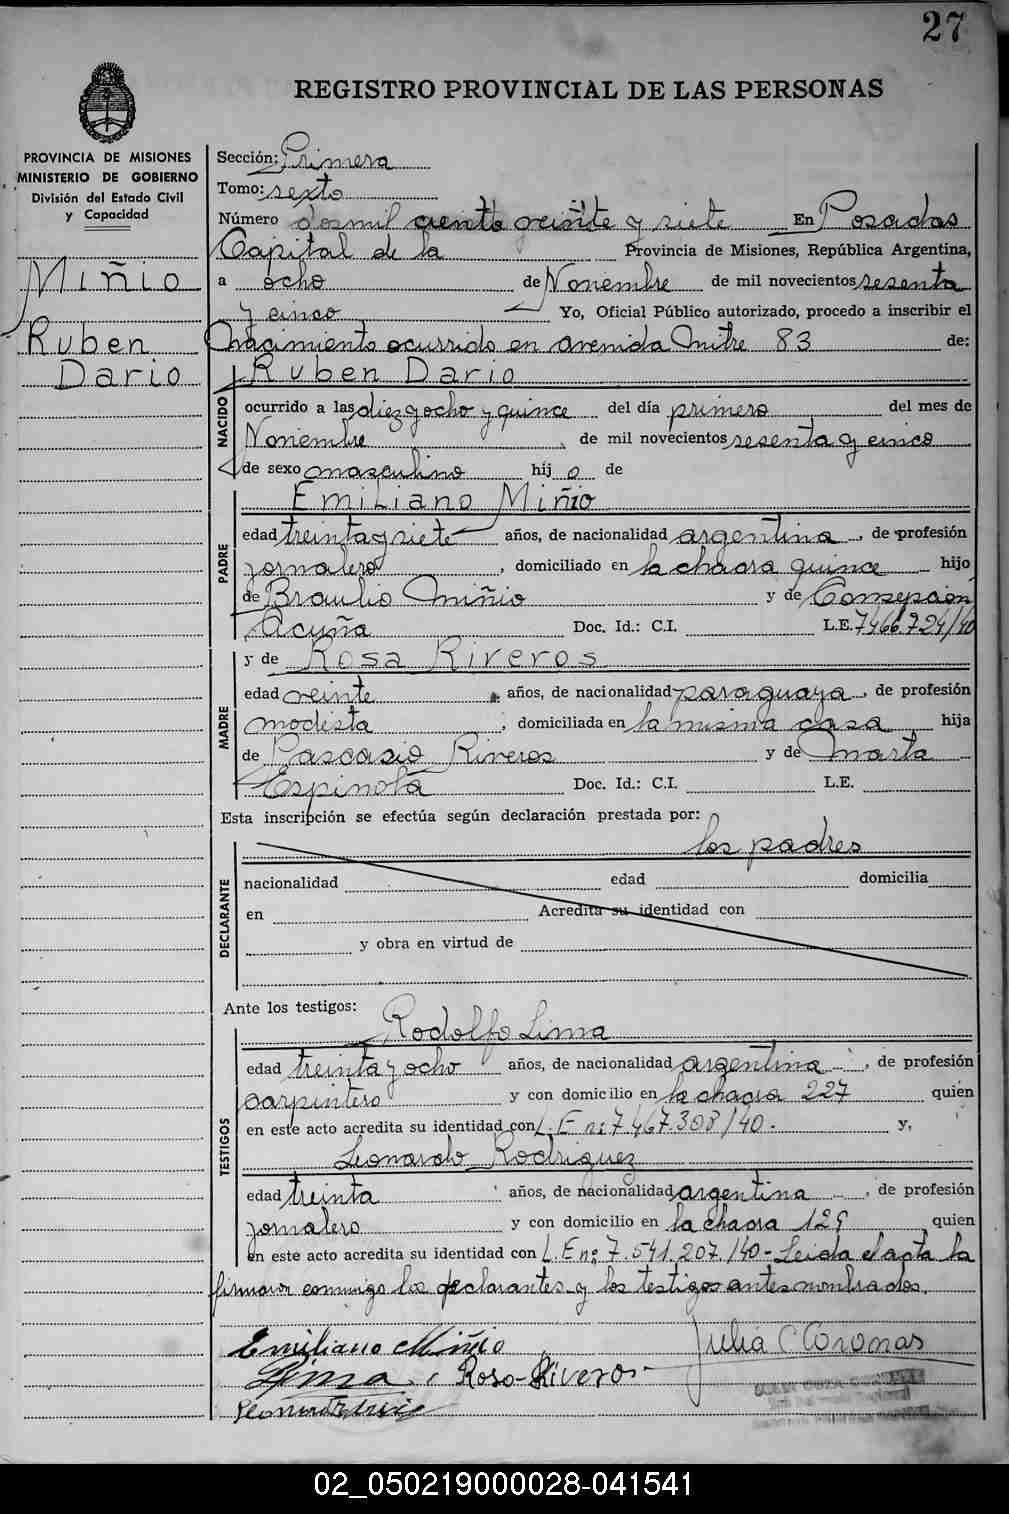 27
REGISTRO PROVINCIAL DE LAS PERSONAS
PROVINCIA DE MISIONES
MINISTERIO DE GOBIERNO
División del Estado Civil
y Capacidad
Miñio
Ruben
Dario
Sección: Primera
Tomo: sexto
Número dosmil ciento veinte y siete En Posadas
Capital de la Provincia de Misiones, República Argentina,
a ocho de Noviembre de mil novecientos sesenta
y cinco Yo, Oficial Público autorizado, procedo a inscribir el
nacimiento ocurrido en avenida Mitre 83 de:
NACIDO
Ruben Dario
ocurrido a las diez y ocho y quince del día primero del mes de
Noviembre de mil novecientos sesenta y cinco
de sexo masculino hij o de
PADRE
Emiliano Miñio
edad treinta y siete años, de nacionalidad argentina, de profesión
jornalero, domiciliado en la chacra quince hijo
de Braulio Miñio y de Consepcion
Acuña Doc. Id.: C.I. L.E. 7466.724/40
MADRE
y de Rosa Riveros
edad veinte años, de nacionalidad paraguaya, de profesión
modista, domiciliada en la misma casa hija
de Pascasio Riveros y de Marta
Espinola Doc. Id.: C.I. L.E.
Esta inscripción se efectúa según declaración prestada por:
los padres
DECLARANTE
nacionalidad edad domicilia
en Acredita su identidad con
y obra en virtud de
Ante los testigos:
TESTIGOS
Rodolfo Lima
edad treinta y ocho años, de nacionalidad argentina, de profesión
carpintero y con domicilio en la chacra 227 quién
en este acto acredita su identidad con L.E nº 7.467.308/40. y,
Leonardo Rodriguez
edad treinta años, de nacionalidad argentina, de profesión
jornalero y con domicilio en la chacra 129 quien
en este acto acredita su identidad con L.E nº 7.541.207/40- Leida el acta la
firmaron conmigo los declarantes y los testigos antes nombrados.
Emiliano Miñio Julia C Coronas
Lima Rosa Riveros
02_050219000028-041541